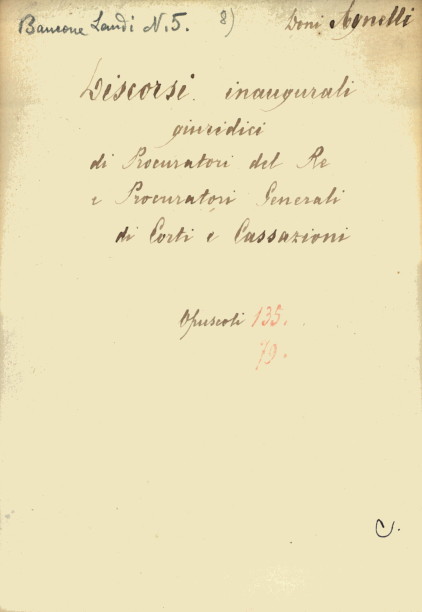 Bancone Landi N. 5. 8) Doni Agnelli
Discorsi inaugurali
giuridici
di Procuratori del Re
e Procuratori Generali
di Corti e Cassazioni
Opuscoli 135.
79.
C.